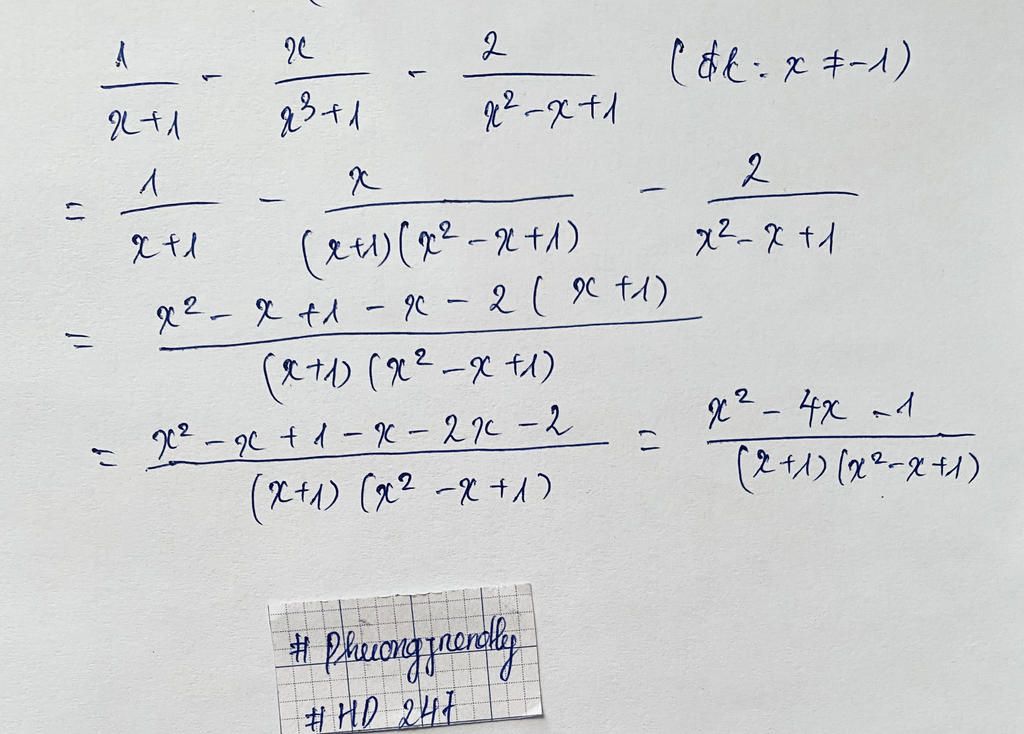 1/(x+1) - x/(x³+1) - 2/(x²-x+1) (đk: x ≠ -1)
= 1/(x+1) - x/((x+1)(x²-x+1)) - 2/(x²-x+1)
= (x²-x+1-x-2(x+1))/((x+1)(x²-x+1))
= (x²-x+1-x-2x-2)/((x+1)(x²-x+1)) = (x²-4x-1)/((x+1)(x²-x+1))
# Phuongfrendlly
# HD 247